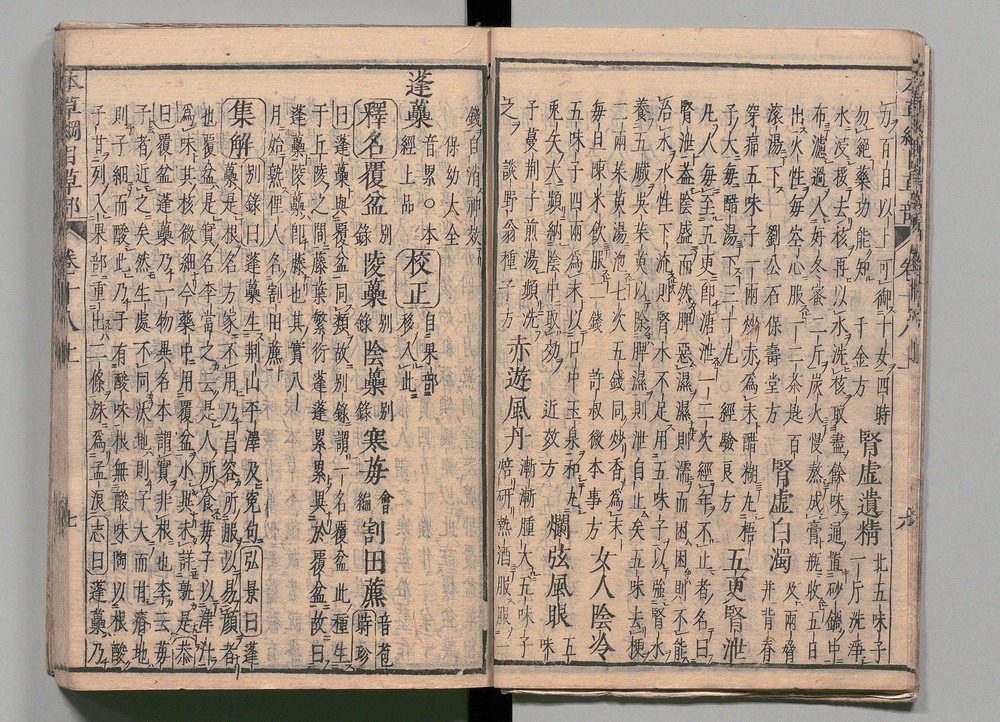 勿百日以上可御十女四時
勿絶藥功能知 千金方 腎虚遺精 北五味子一斤洗淨
水浸挼去核再以水洗核取盡餘味通置砂鍋中
布濾過入好冬蜜二斤炭火慢熬成膏瓶收五日
出火性每空心服一二茶匙百
滚湯下 劉公石保壽堂方 腎虚白濁 及兩脅并背脊
穿痛五味子一兩炒赤為末醋糊丸梧
子大每醋湯下三十丸 經驗良方 五更腎泄
凡人每至五更即溏泄一二次經年不止者名曰
腎泄蓋陰盛而然脾惡濕濕則濡而困困則不能
治水水性下流則腎水不足用五味子以強腎水
養五臟吳茱萸以除脾濕則泄自止矣五味去梗
二兩茱萸湯泡七次五錢同炒香為末
每旦陳米飲服二錢 許叔微本事方 女人陰冷
五味子四兩為末以口中玉泉和丸
兎矢大頻納陰中取効 近效方 爛弦風眼 五味
子蔓荆子煎湯頻洗
之 談野翁種子方 赤遊風丹 漸漸腫大五味子
焙研熱酒服
錢自消神效
保幼大全
蓬蘽 音累○本經上品 校正 自果部移入此
釋名 覆盆 别録 陵蘽 别録 陰蘽 别録 寒莓 會編 割田藨 音苞 時珍
曰蓬蘽與覆盆同類故别錄謂一名覆盆此種生
于丘陵之間藤葉繁衍蓬蓬累累異於覆盆故曰
蓬蘽陵蘽即藤也其實八
月始熟俚人名割田藨
集解 别錄曰蓬蘽生荆山平澤及冤句弘景曰蓬
蘽是根名方家不用乃昌容所服以易顏者
也覆盆是實名李當之云是人所食莓子以津汁
為味其核微細今藥中用覆盆小異未詳孰是恭
曰覆盆蓬蘽乃一物異名本謂實非根也李云莓
子者近之矣然生處不同沃地則子大而甘瘠地
則子細而酸此乃子有甘酸味根無酸味陶以根酸
子甘列入果部重出二條殊為孟浪志曰蓬蘽乃